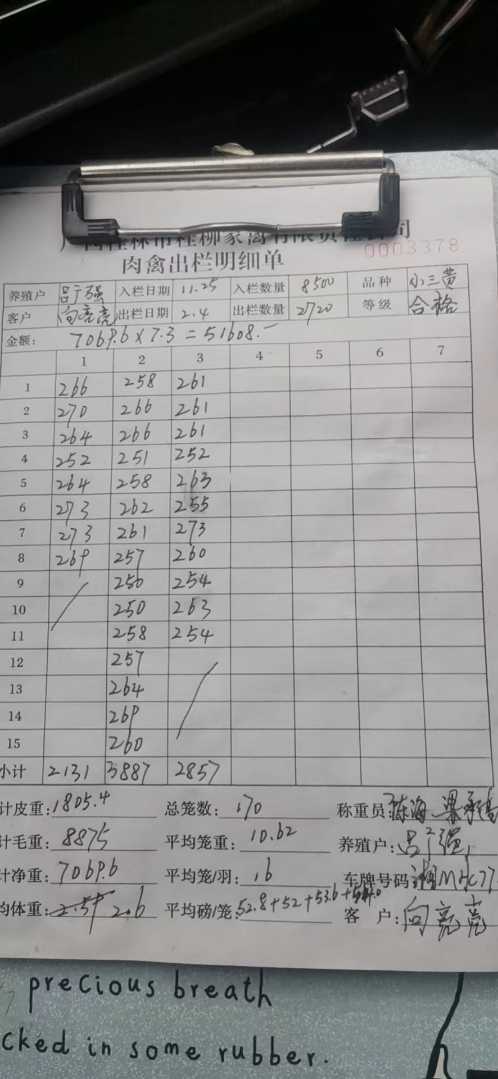 桂林市桂柳家禽有限责任公司
0003378
肉禽出栏明细单
养殖户 吕广强 入栏日期 11.25 入栏数量 8500 品种 小三黄
客户 向亮亮 出栏日期 2.4 出栏数量 2720 等级 合格
金额: 7069.6 x 7.3 = 51608.-
1 2 3 4 5 6 7
1 266 258 261
2 270 266 261
3 264 266 261
4 252 251 252
5 264 258 263
6 273 262 255
7 273 261 273
8 269 257 260
9 250 254
10 250 263
11 258 254
12 257
13 264
14 269
15 260
小计 2131 3887 2857
计皮重: 1805.4 总笼数: 170 称重员: 陈海
计毛重: 8875 平均笼重: 10.62 养殖户: 吕广强
计净重: 7069.6 平均笼/羽: 16 车牌号码
均体重: 2.59 2.6 平均磅/笼: 52.8+52+53.6+ 客 户: 向亮亮
precious breath
cked in some rubber.